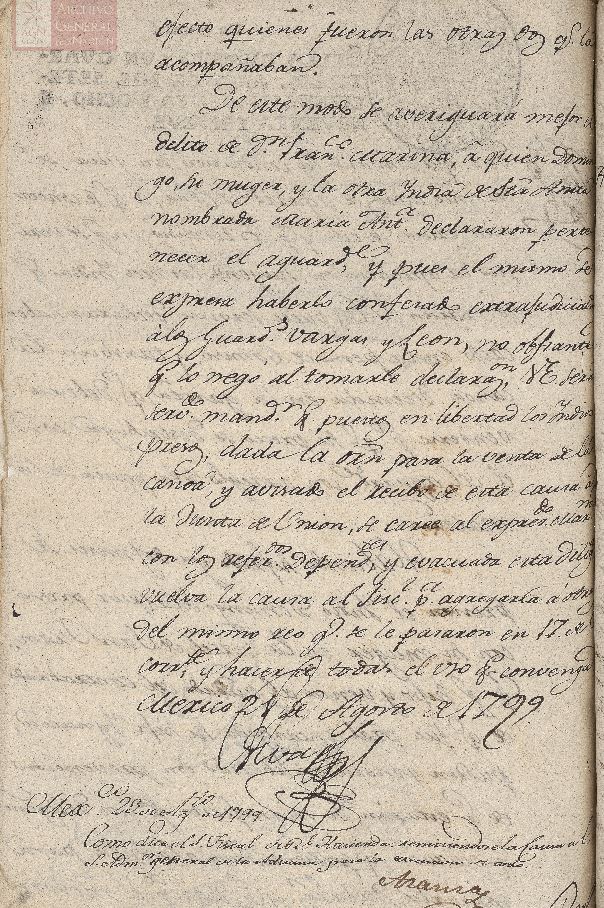 ARCHIVO
GENERAL
DE LA NACIÓN
efecto quienes fueron las otras dos qe. la
acompañaban.
De este modo se averiguará mejor el
delito de Dn. Franco. Marina, á quien Domin
go, su muger, y la otra India de Sta. Anita
nombrada Maria Anta. declararon perte
necer el aguarde. y pues el mismo se
expresa haberlo confesado extrajudicialmte.
á los Guardas. Vargas y Leon, no obstante
q. lo nego al tomarle declaraon. VE será
servo. mandr. q. puestos en libertad los Indios
presos, dada la orn para la venta de la
canoa, y avisado el recibo de esta causa á
la Junta de Union, se caree al expresdo. Mar
con los refordos. Dependtes. y evacuada esta dilig
vuelva la causa al Fiscl. pa. agregarla á otras
del mismo reo q. se le pasaron en 17 del
corrte. y hacerse de todas el uso q. convenga
Mexico 21 de Agosto de 1799
Mexco. 23 de Agto de 1799
Como dice el S. Fiscal de Rl. Hacienda, remitiendose la Causa al
S. Admor general de la Aduana para la execucion de todo.